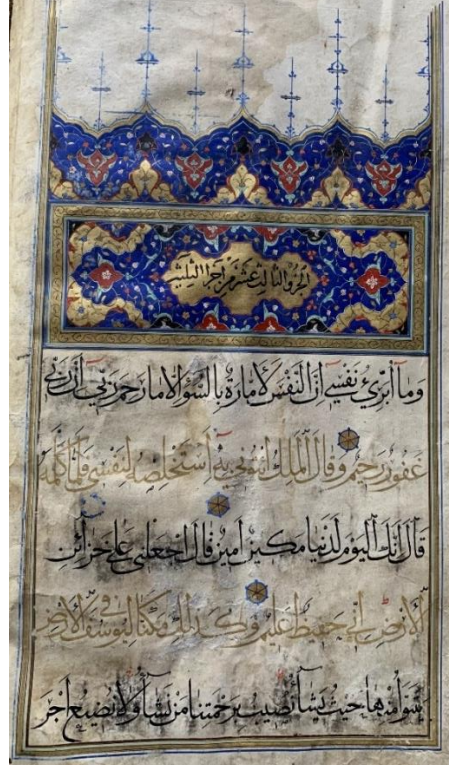 الجزو الثالث عشر من اجزا الثلثين
وما أبرئ نفسي ان النفس لأمارة بالسوء الا ما رحم ربي ان ربي
غفور رحيم وقال الملك ائتوني به أستخلصه لنفسي فلما كلمه
قال انك اليوم لدينا مكين أمين قال اجعلني على خزآئن
الأرض اني حفيظ عليم وكذلك مكنا ليوسف في الأرض
يتبوأ منها حيث يشآء نصيب برحمتنا من نشآء ولا نضيع أجر